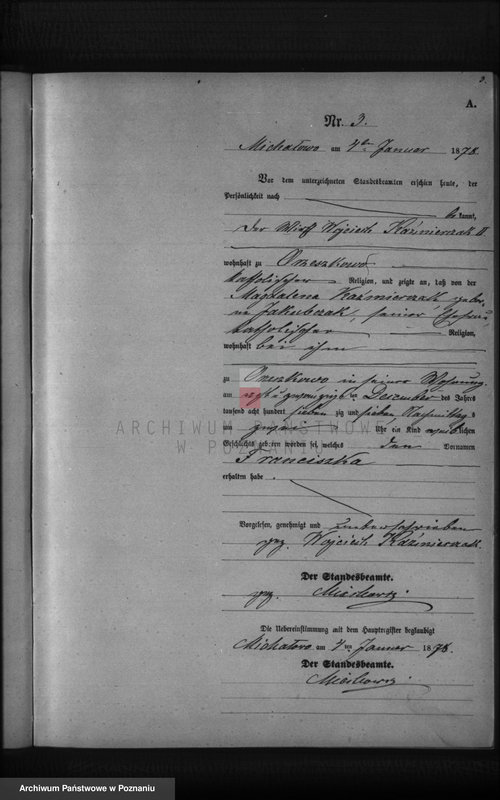 3.
A.
Nr. 3.
Michałowo am 4ten Januar 1878.
Vor dem unterzeichneten Standesbeamten erschien heute, der
Persönlichkeit nach
be kannt,
der Wirth Wojciech Kaźmierczak II
wohnhaft zu Orzeszkowo
katholischer Religion, und zeigte an, daß von der
Magdalena Kaźmierczak gebor-
ne Jakubczak, seiner Ehefrau
katholischer Religion,
wohnhaft bei ihm
zu Orzeszkowo in seiner Wohnung
am acht u zwanzigsten Dezember des Jahres
tausend acht hundert sieben zig und sieben Nachmittags
um Uhr ein Kind weiblichen
Geschlechts geboren worden sei, welches den Vornamen
Franciszka
erhalten habe.
Vorgelesen, genehmigt und unterschrieben
gez. Wojciech Kaźmierczak.
Der Standesbeamte.
gez.
Die Uebereinstimmung mit dem Hauptregister beglaubigt
Michałowo am 4ten Januar 1878.
Der Standesbeamte.
ARCHIWUM PAŃSTWOWE
W POZNANIU
Archiwum Państwowe w Poznaniu